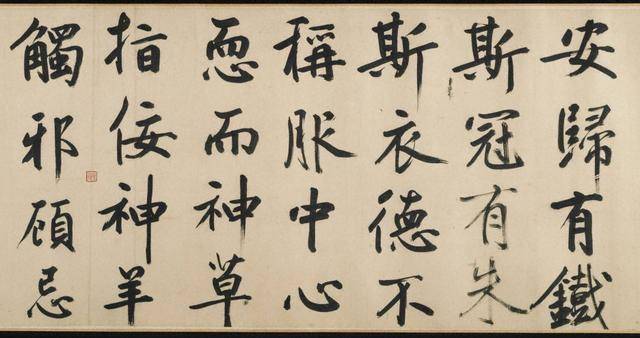 安歸有鐵
斯冠有朱
斯衣德不
稱服中心
恧而神草
指佞神羊
觸邪顧忌